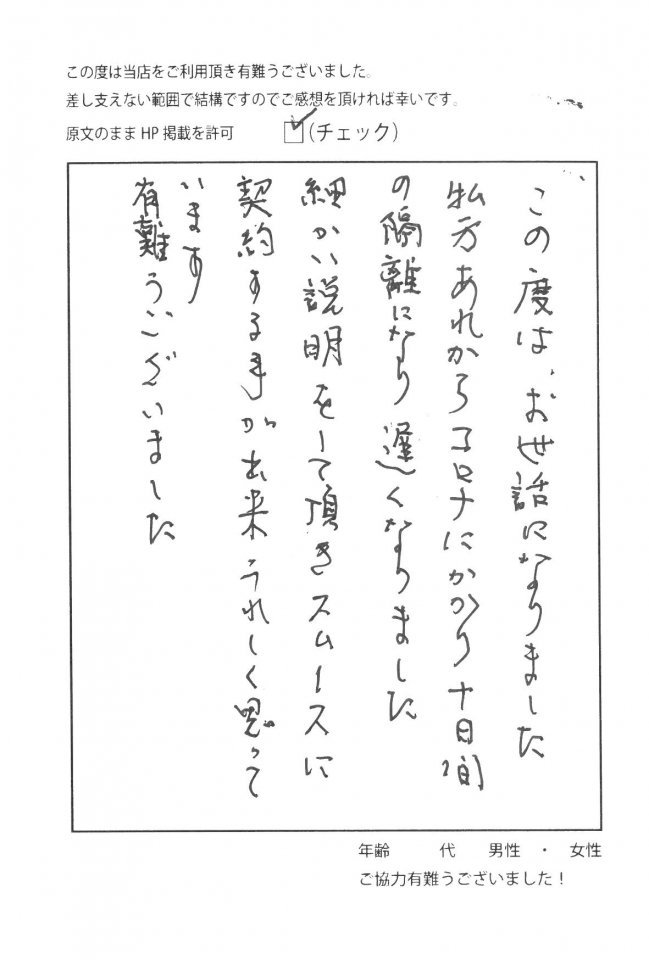 この度は当店をご利用頂き有難うございました。
差し支えない範囲で結構ですのでご感想を頂ければ幸いです。
原文のまま HP 掲載を許可 ☑(チェック)
この度は、お世話になりました
私方あれからコロナにかかり十日間
の隔離になり遅くなりました
細かい説明をして頂きスムースに
契約する事が出来うれしく思って
います
有難うございました
年齢 代 男性 ・ 女性
ご協力有難うございました！